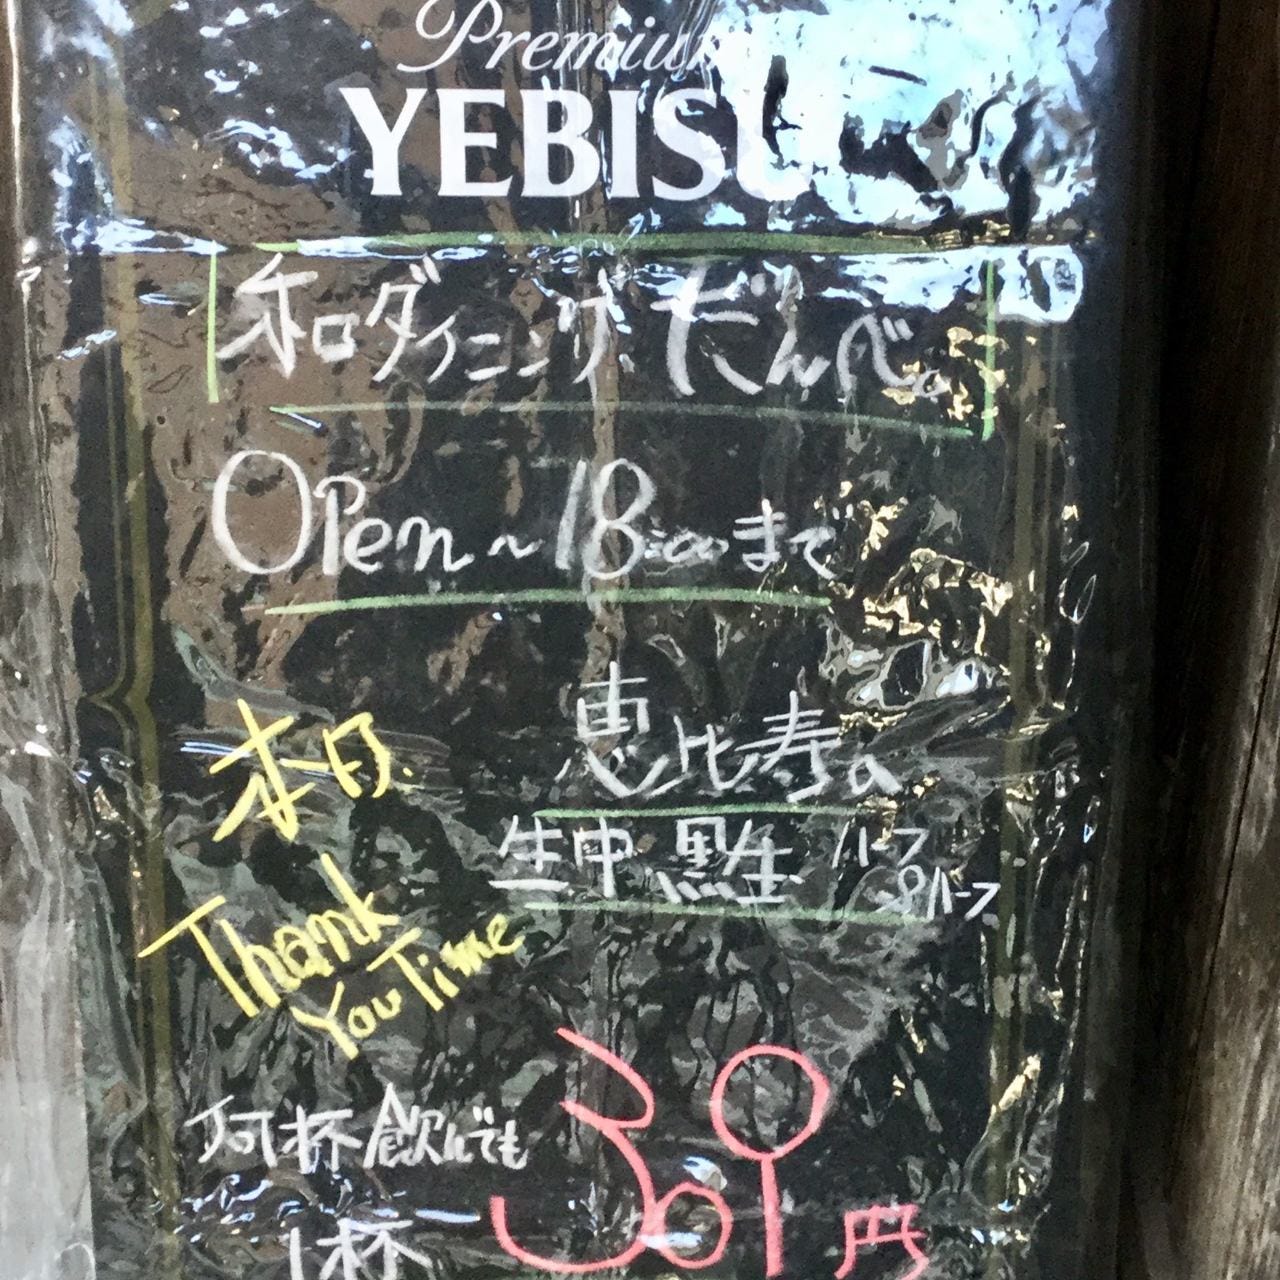 Premium
YEBISU
和ダイニング だんべ。
Open〜18:00まで
本日
恵比寿の
生中 黒生 ハーフ&ハーフ
Thank
You Time
何杯飲んでも
1杯 39円